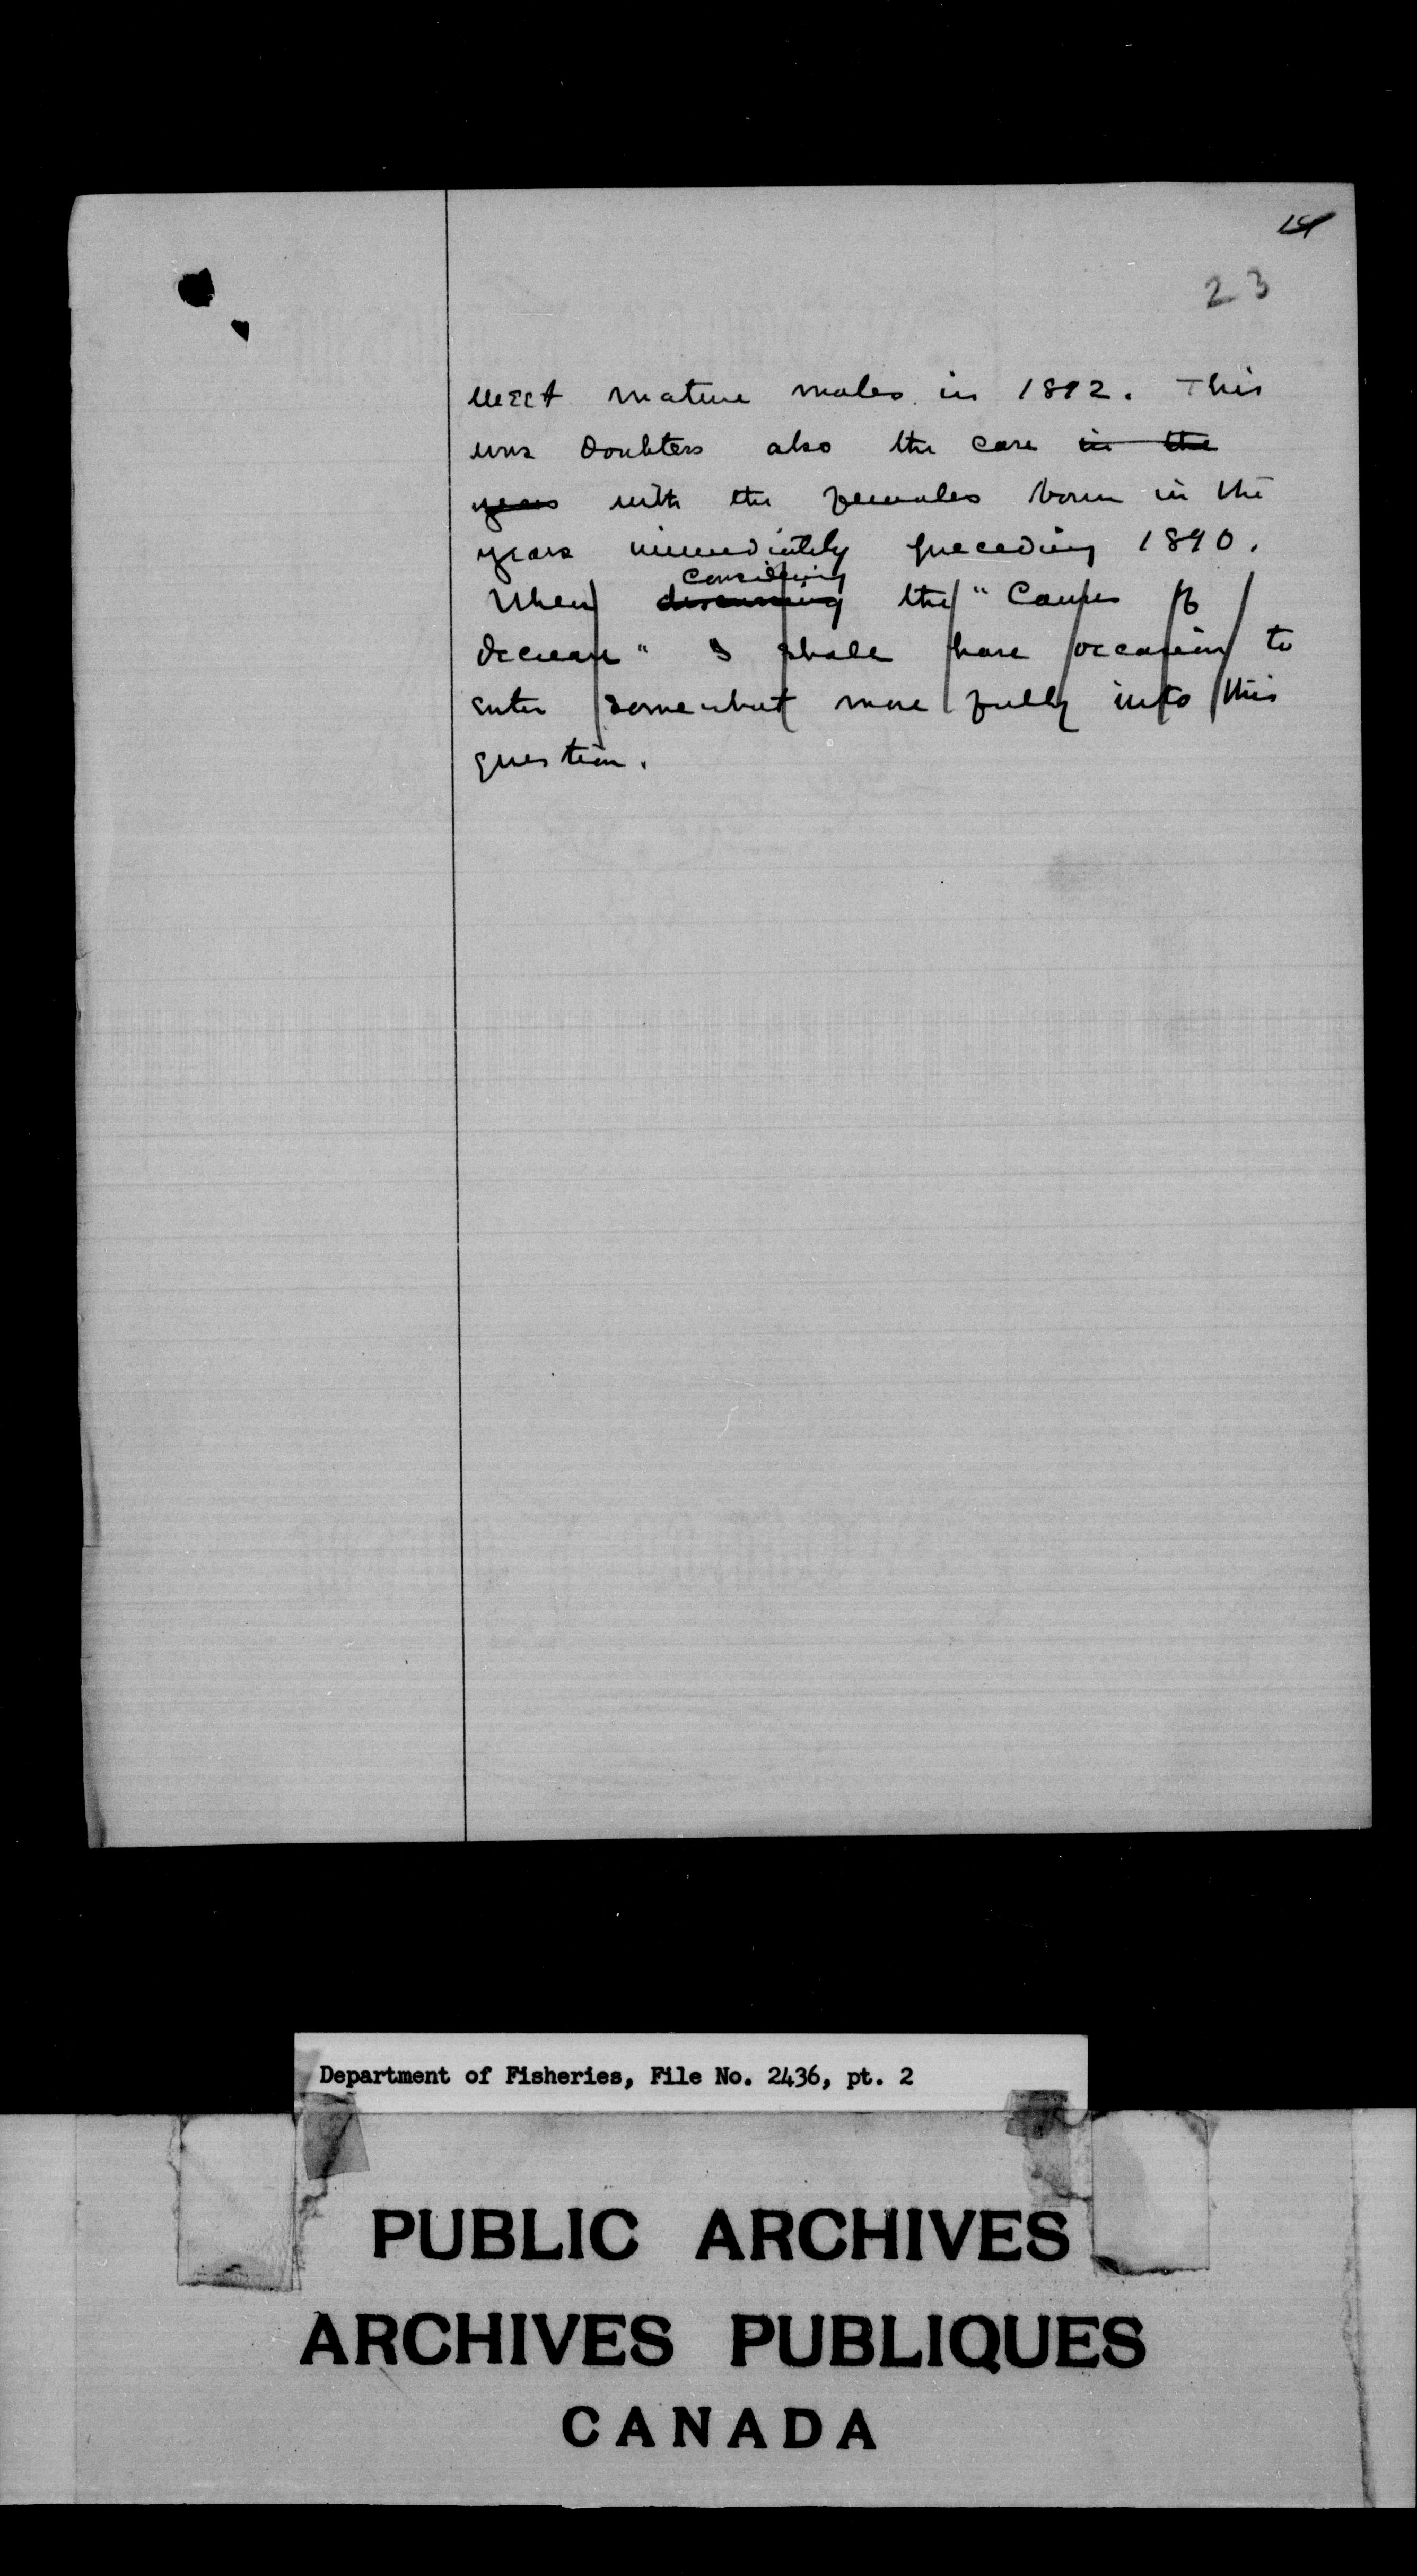 23
meet mature males in 1892. This
was doubtless also the case in the
years with the females born in the
years immediately preceding 1890.
considering
When discussing the "Causes of
decrease" I shall have occasion to
enter somewhat more fully into this
question.
Department of Fisheries, File No. 2436, pt. 2
PUBLIC ARCHIVES
ARCHIVES PUBLIQUES
CANADA